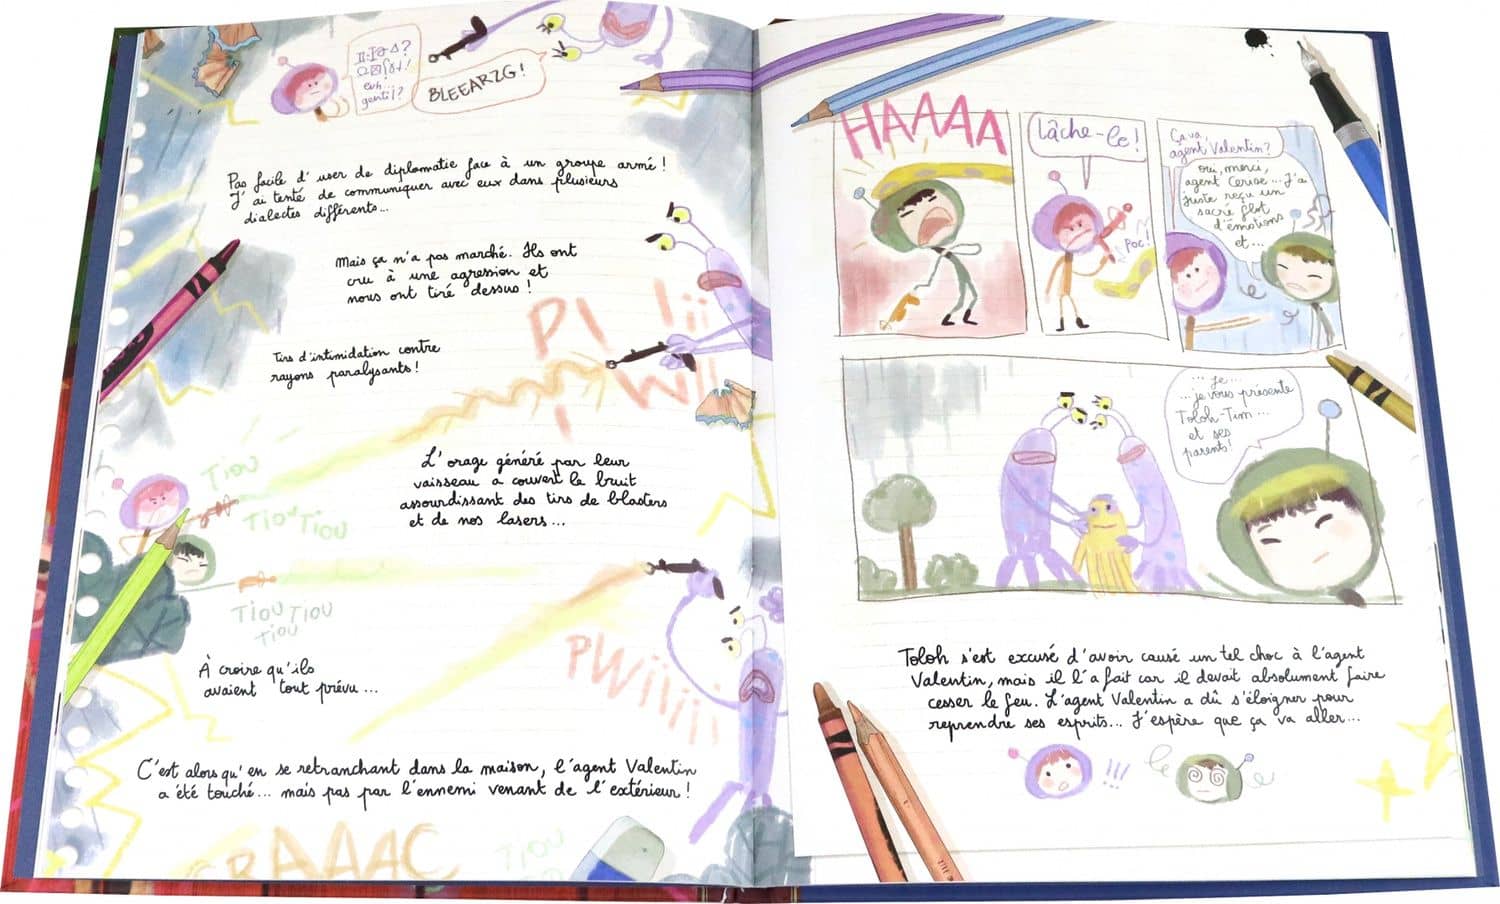 euh...
gentil?
BLEEARZG!
Pas facile d'user de diplomatie face à un groupe armé!
J'ai tenté de communiquer avec eux dans plusieurs
dialectes différents...
Mais ça n'a pas marché. Ils ont
cru à une agression et
nous ont tiré dessus!
PIIII
PWIII
Tirs d'intimidation contre
rayons paralysants!
TIOU
TIOU TIOU
L'orage généré par leur
vaisseau a couvert le bruit
assourdissant des tirs de blasters
et de nos lasers...
TIOU TIOU
TIOU
PWiiiii
À croire qu'ils
avaient tout prévu...
C'est alors qu'en se retranchant dans la maison, l'agent Valentin
a été touché... mais pas par l'ennemi venant de l'extérieur!
CRAAAC
TIOU
HAAAAA
Lâche-le!
POC!
Ça va,
agent Valentin?
Oui, merci,
agent Cerise... J'ai
juste reçu un
sacré flot
d'émotions
et...
... je...
... je vous présente
Toloh-Tim...
et ses
parents!
Toloh s'est excusé d'avoir causé un tel choc à l'agent
Valentin, mais il l'a fait car il devait absolument faire
cesser le feu. L'agent Valentin a dû s'éloigner pour
reprendre ses esprits... J'espère que ça va aller...
!!!